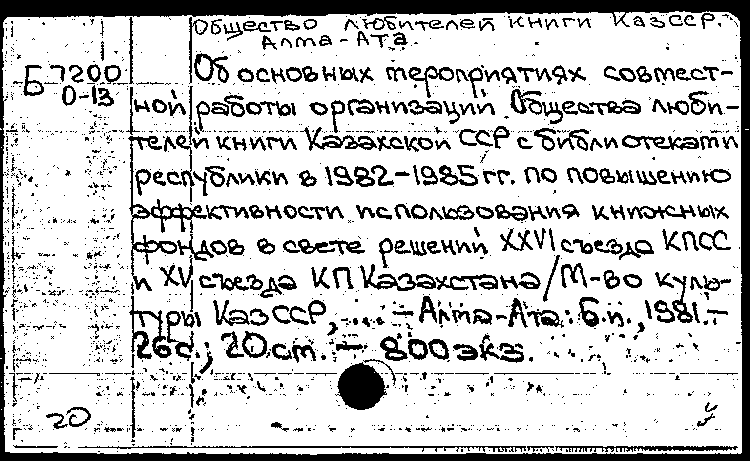 Общество любителей книги КазССР.
Алма-Ата.
Б 7200
0-13
Об основных мероприятиях совмест-
ной работы организаций Общества люби-
телей книги Казахской ССР с библиотеками
республики в 1982-1985 гг. по повышению
эффективности использования книжных
фондов в свете решений XXVI съезда КПСС
и XV съезда КП Казахстана/М-во куль-
туры КазССР, ... - Алма-Ата: Б.и., 1981.-
26с.; 20 см. - 800 экз.
20